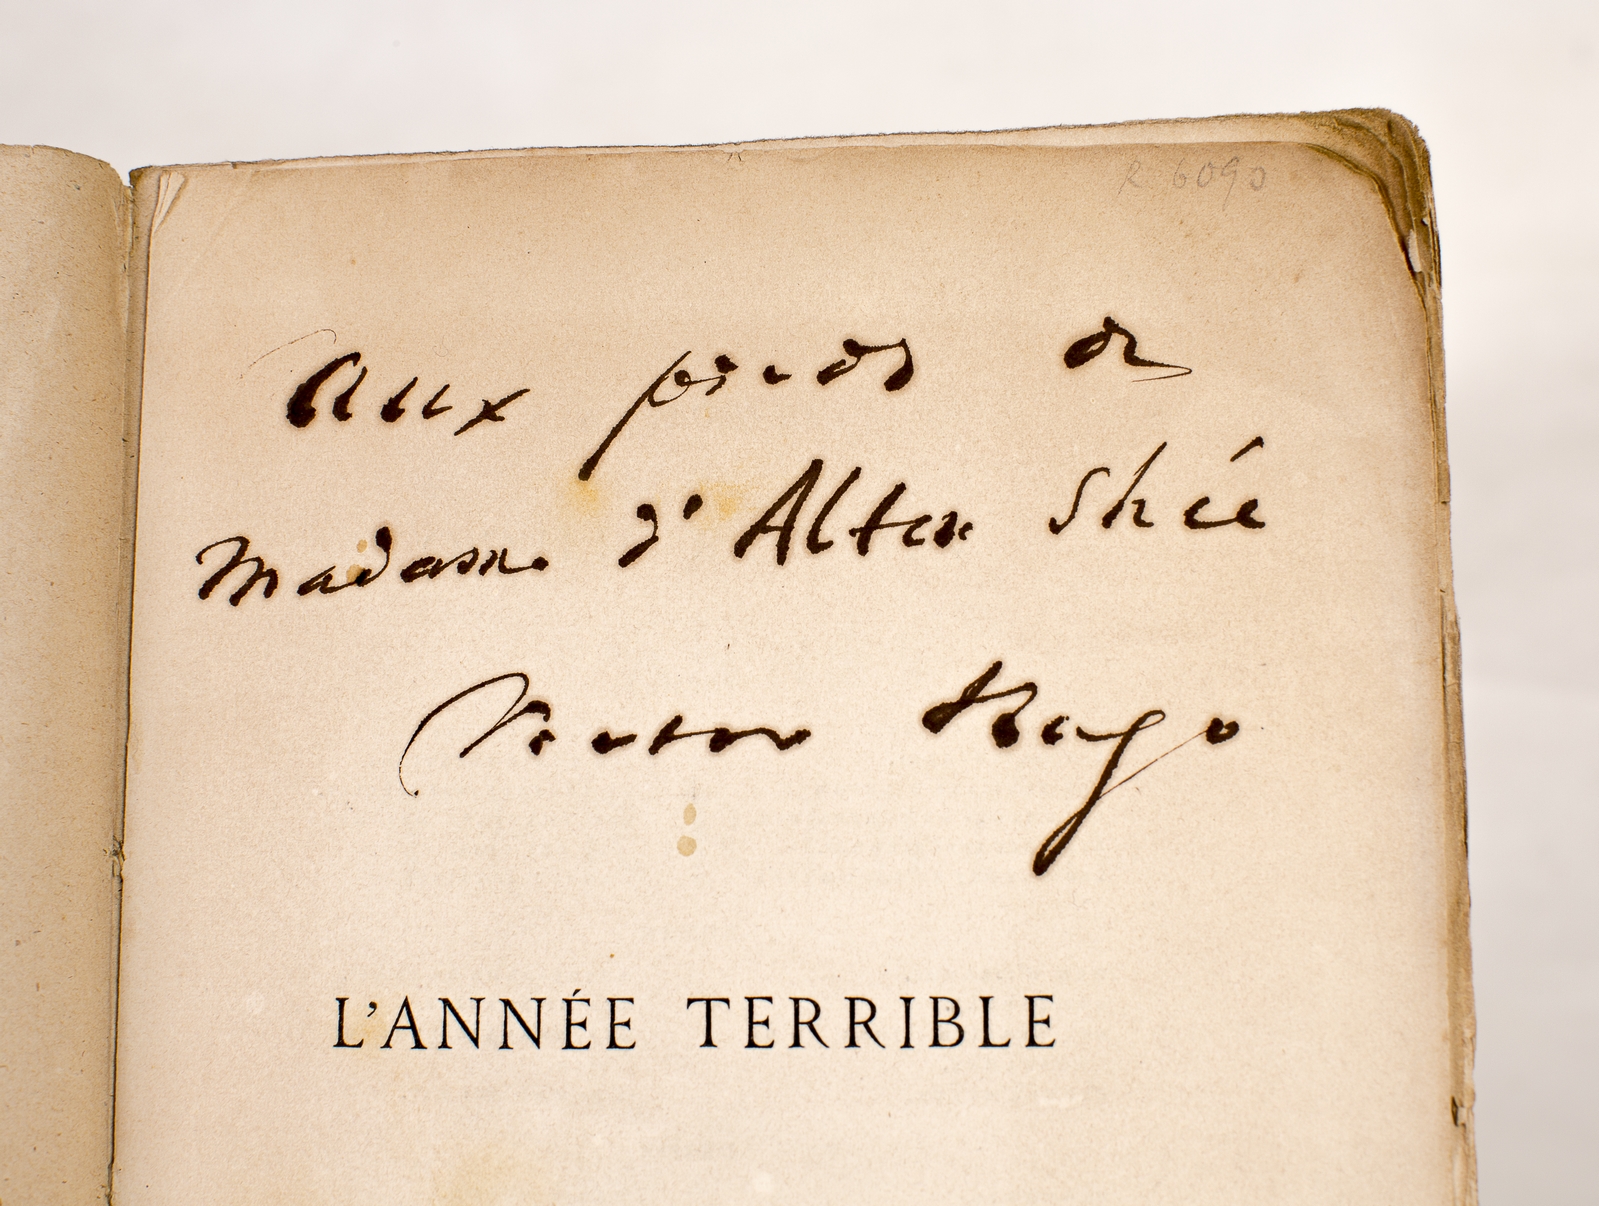 R 6090
Aux pieds de
Madame d'Alten Shée
Victor Hugo
L'ANNÉE TERRIBLE